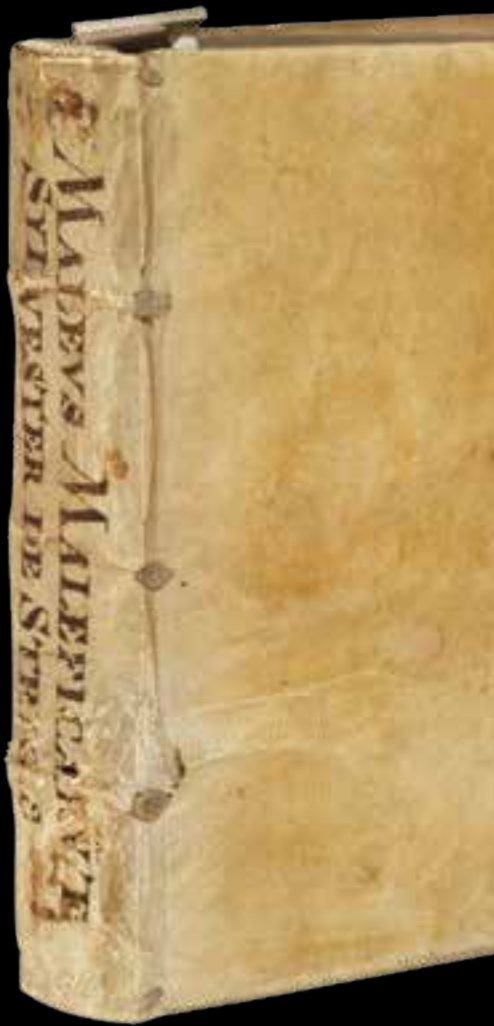 MALLEVS MALEFICARVM
SYLVESTER DE STRIGI